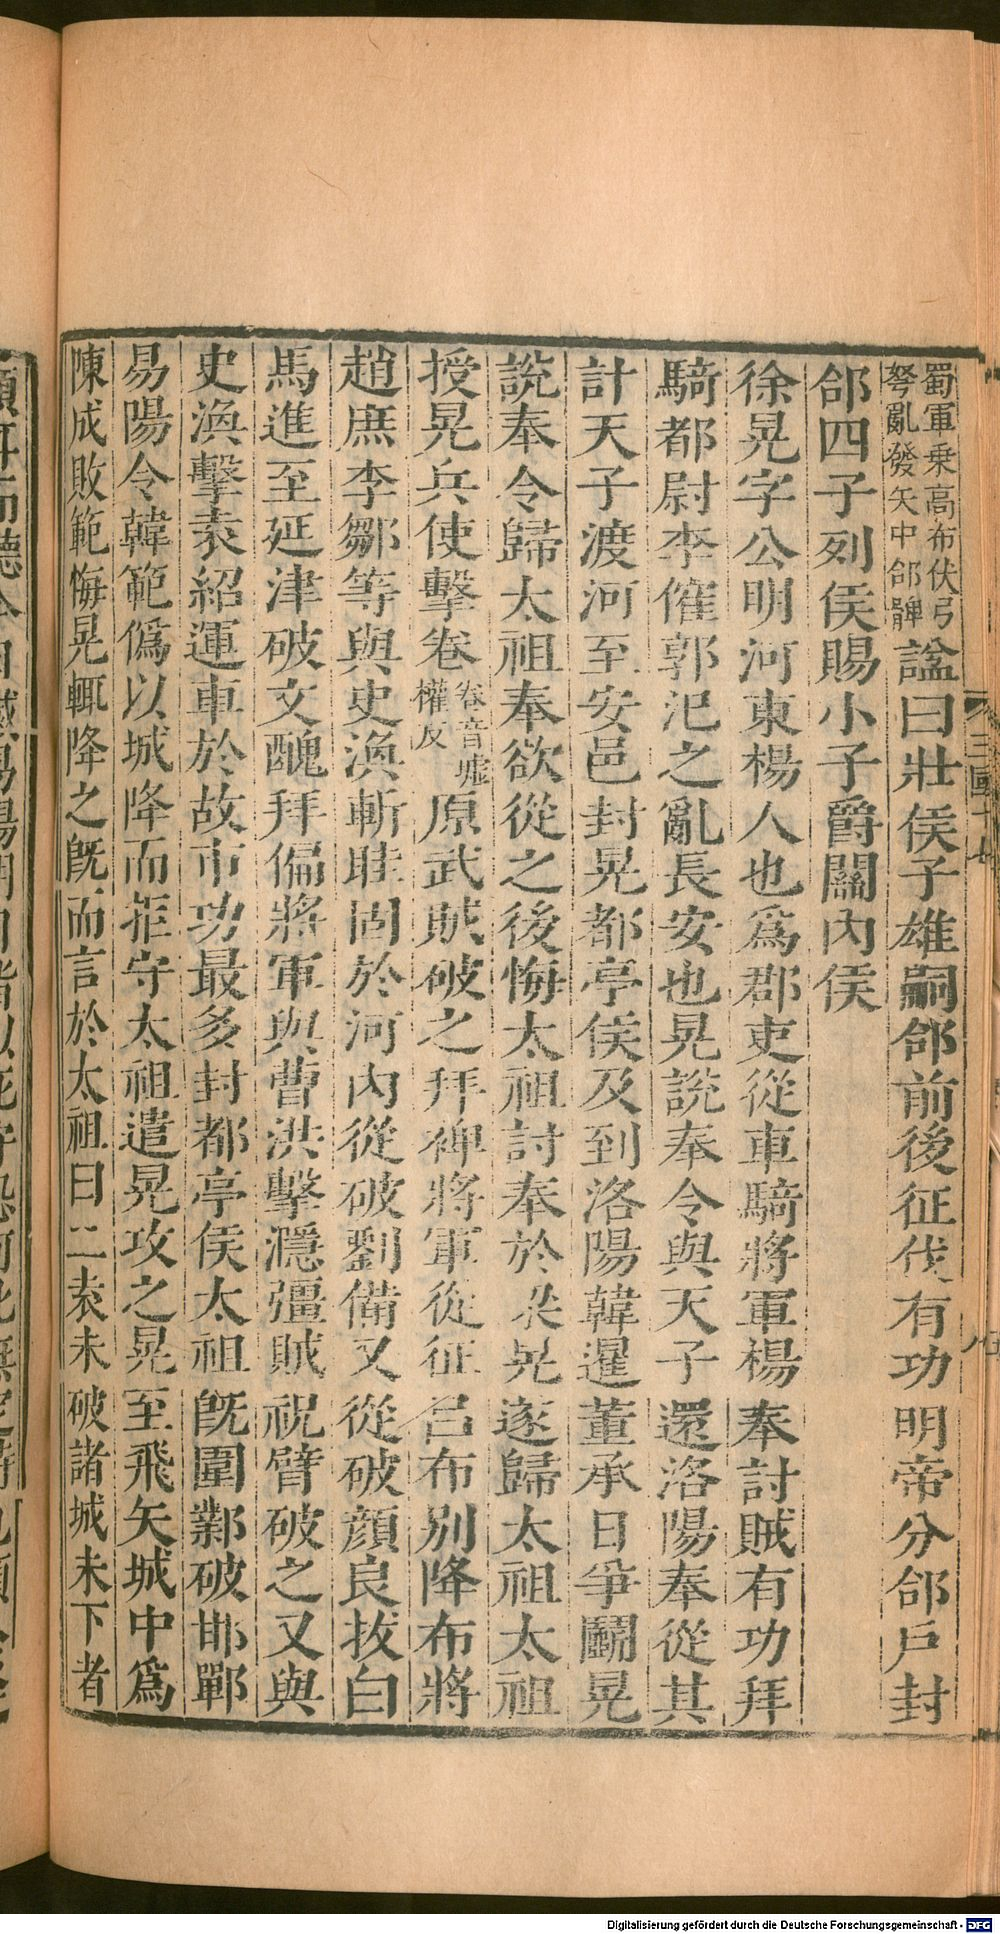 蜀軍乗高布伏弓
弩亂發矢中郃髀
諡曰壯侯子雄嗣郃前後征伐有功明帝分郃戶封
郃四子列侯賜小子爵關內侯
徐晃字公明河東楊人也爲郡吏從車騎將軍楊奉討賊有功拜
騎都尉李傕郭汜之亂長安也晃說奉令與天子還洛陽奉從其
計天子渡河至安邑封晃都亭侯及到洛陽韓暹董承日爭鬭晃
說奉令歸太祖奉欲從之後悔太祖討奉於梁晃遂歸太祖太祖
授晃兵使擊卷
卷音墟
權反
原武賊破之拜裨將軍從征呂布別降布將
趙庶李鄒等與史渙斬眭固於河內從破劉備又從破顔良拔白
馬進至延津破文醜拜偏將軍與曹洪擊㶏彊賊祝臂破之又與
史渙擊袁紹運車於故市功最多封都亭侯太祖旣圍鄴破邯鄲
易陽令韓範僞以城降而拒守太祖遣晃攻之晃至飛矢城中爲
陳成敗範悔晃輒降之旣而言於太祖曰二袁未破諸城未下者
三國十七
Digitalisierung gefördert durch die Deutsche Forschungsgemeinschaft - DFG